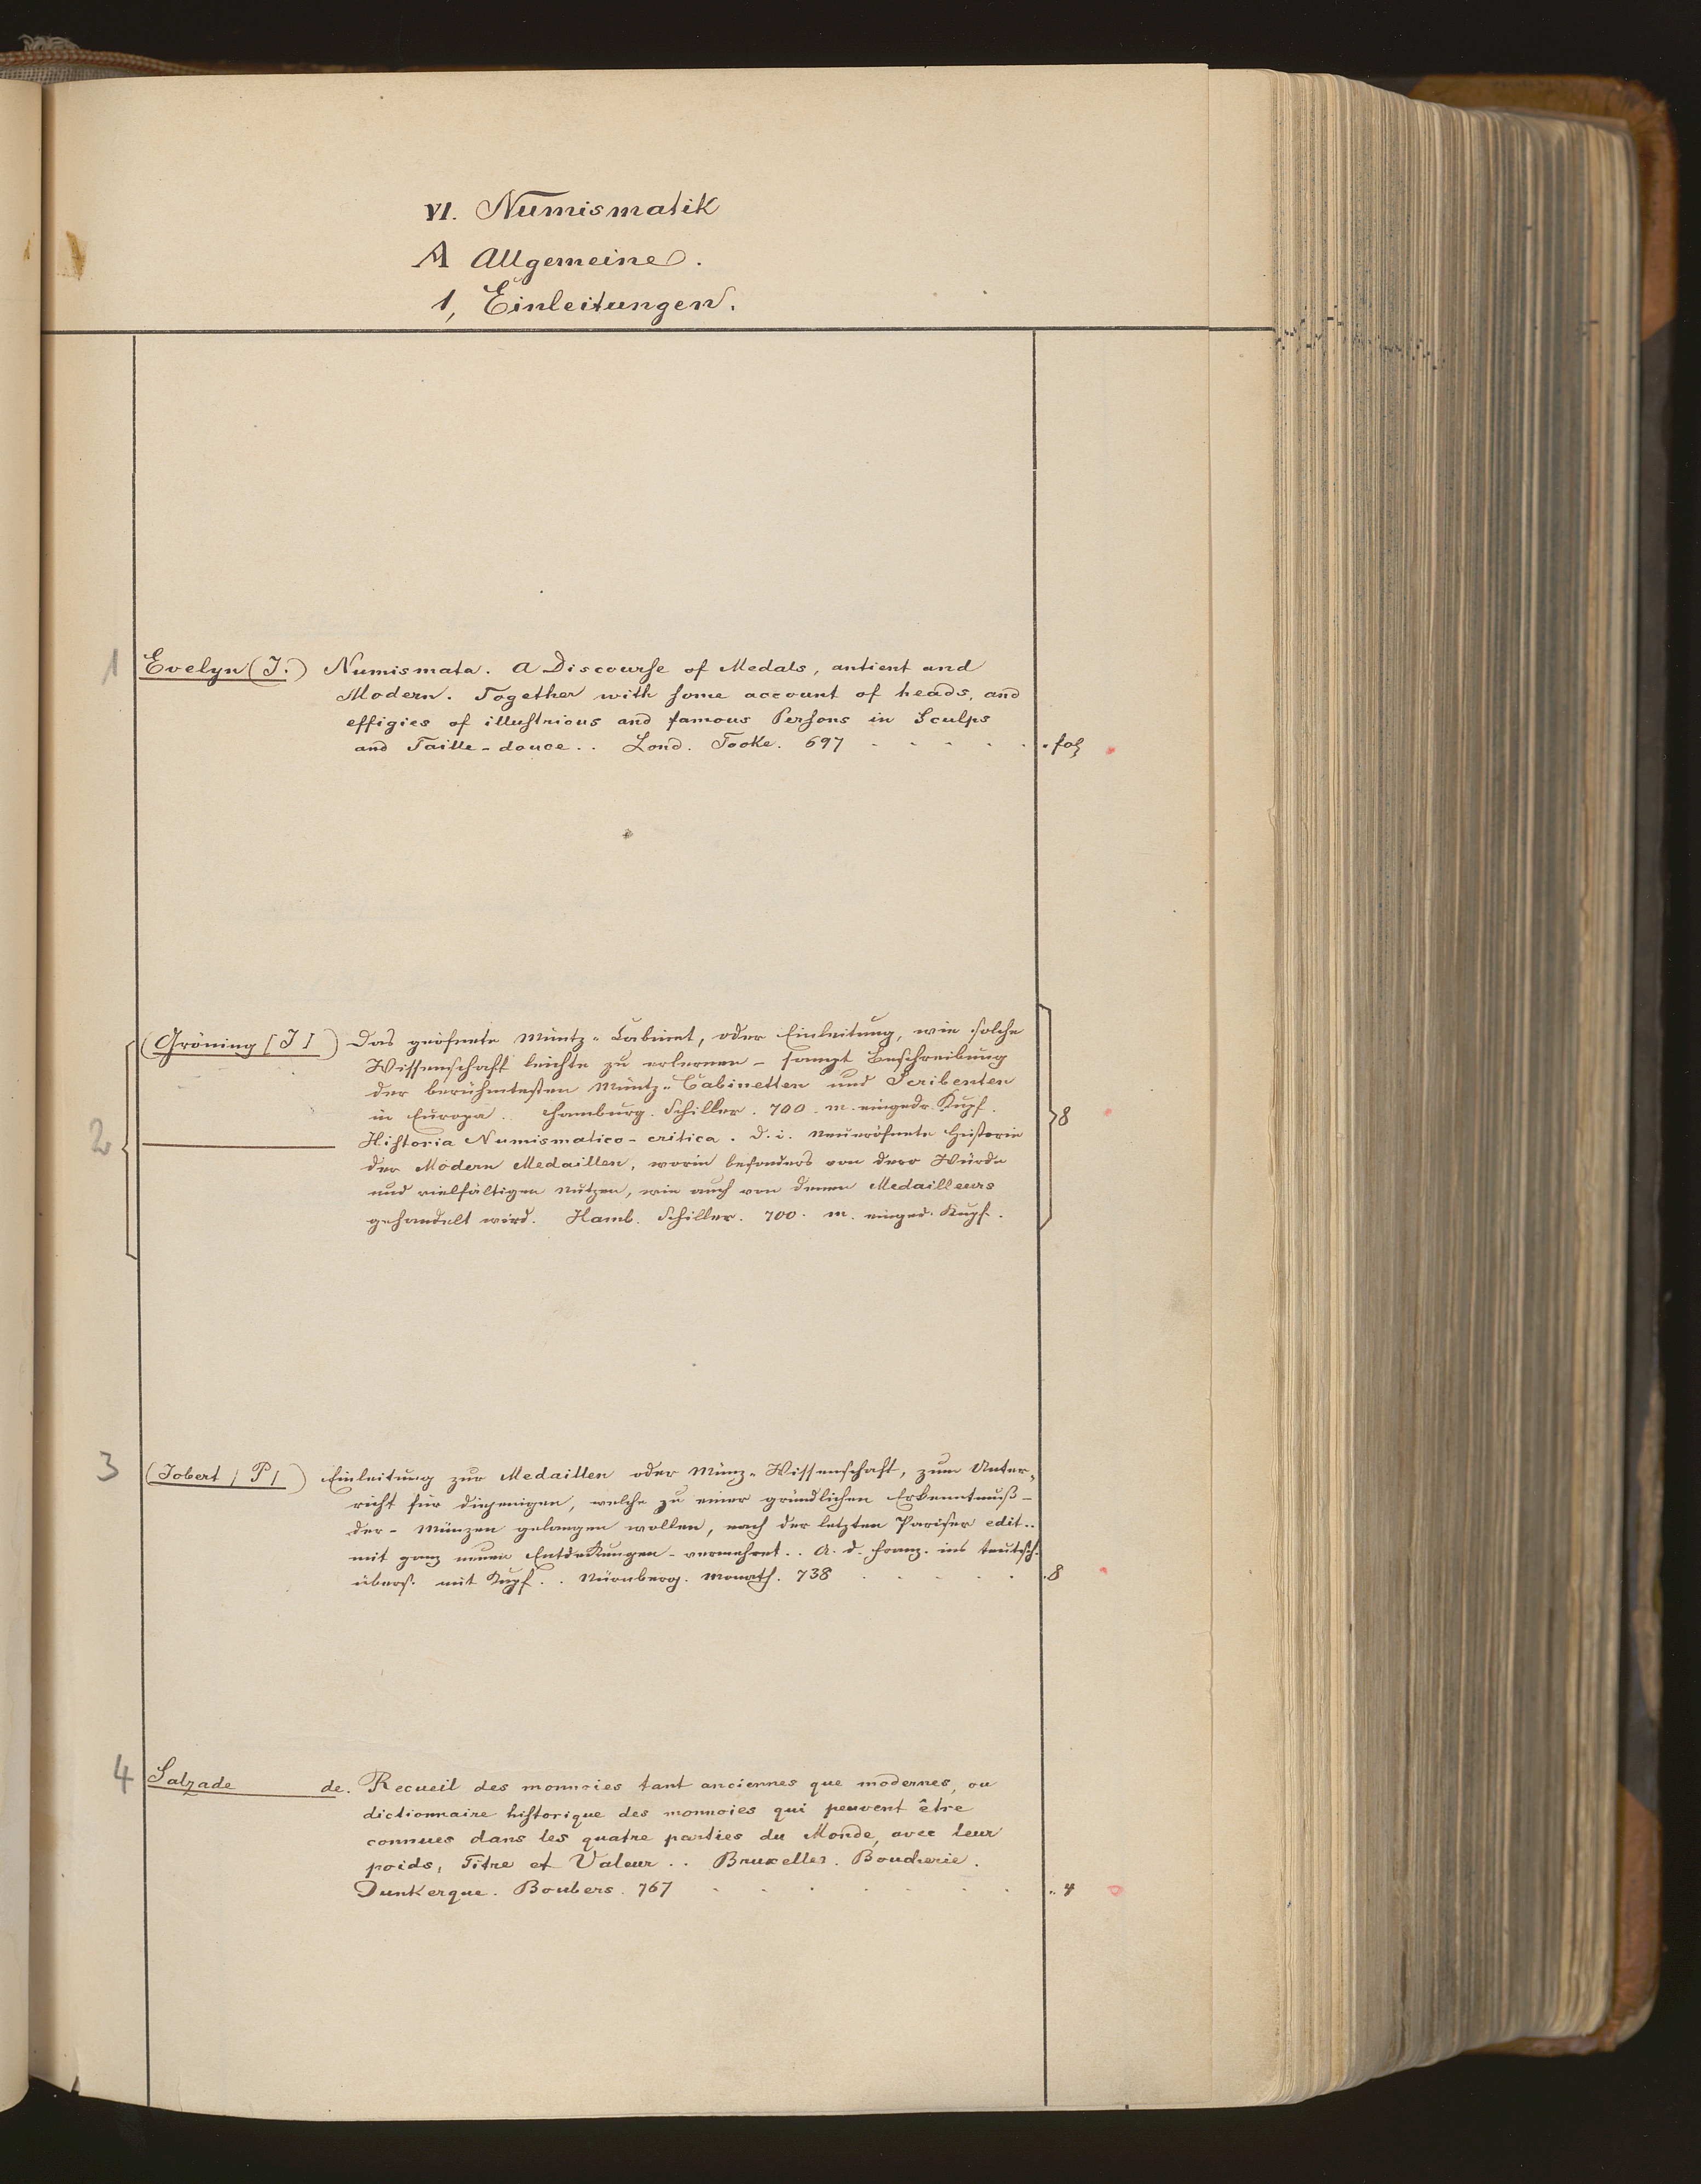 VI. Numismatik
A Allgemeine.
1, Einleitungen.
1 Evelyn (J.) Numismata. A Discourse of Medals, antient and
Modern. Together with some account of heads, and
effigies of illustrious and famous Persons in Sculps
and Taille-douce.. Lond. Tooke. 697 . . . . . . fol
(Gröning [J]) Das geöfnete Müntz-Cabinet, oder Einleitung, wie solche
Wissenschaft leichte zu erlernen - sampt Beschreibung
der berühmtesten Müntz-Cabinetten und Scribenten
in Europa. Hamburg. Schiller. 700. m. eingedr. Kupf.
2 8
Historia Numismatico-critica. d. i. Neueröfnete Historie
der Modern Medaillen, worin besonders von dero Würde
und vielfältigen Nutzen, wie auch von denen Medailleurs
gehandelt wird. Hamb. Schiller. 700. m. einged. Kupf.
3 (Jobert / P /) Einleitung zur Medaillen oder Münz-Wissenschaft, zum Unter-
richt für diejenigen, welche zu einer gründlichen Erkenntnuß-
der - Münzen gelangen wollen, nach der letzten Pariser edit..
mit ganz neuen Entdekungen - vermehret.. A. d. Franz. ins teutsch.
übers. mit Kupf.. Nürnberg. Monath. 738 . . . . . . 8
4 Salzade de. Recueil des monnoies tant anciennes que modernes, ou
dictionnaire historique des monnoies qui peuvent être
connues dans les quatre parties du Monde, avec leur
poids, Titre et Valeur.. Bruxelles. Boucherie.
Dunkerque. Boubers. 767 . . . . . . . 4